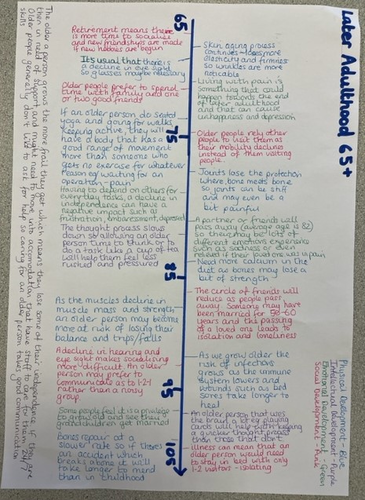 Later Adulthood 65+
65
Retirement means there
is more time to socialise
and new friendships are made
if new hobbies are begin
It's usual that there is
a decline in eye sight
so glasses may be necessary
Older people prefer to spend
time with family and one
or two good friends
If an older person do seated
yoga and going for walks
keeping active, they will
have a body that has a
good range of movement
more than someone who
gets no exercise for whatever
reason eg waiting for an
operation - pain
Having to depend on others for
everyday tasks, a decline in
independence can have a
negative impact such as
frustration, embarrassment, depressed
The thought process slows
down so allowing an older
person time to think or to
do a task like a cup of tea
will help them feel less
rushed and pressured
As the muscles decline in
muscle mass and strength
an older person may become
more at risk of losing their
balance and trips/falls
A decline in hearing and
eye sight makes socialising
more difficult. An older
person may prefer to
communicate as to 1-2-1
rather than a noisy
group.
Some people feel it is a privilege
to grow old and see their
grandchildren get married
Bones repair at a
slower rate so if there's
an accident which
breaks bone it will
take longer to mend
than in childhood
75
85
95
105
Skin ageing process
continues - loses more
elasticity and firmness
so wrinkles are more
noticeable
Living with pain is
something that could
happen towards the end
of later adulthood
and that can cause
unhappiness and depression
Older people rely other
people to visit them as
their mobility declines
instead of them visiting
people.
Joints lose the protection
where bones meet bone
so joints can be stiff
and may even be a
bit painful
A partner or friends will
pass away (average age is 82)
so there may be lots of
different emotions experience
such as sadness or even
relieved if their loved one was in pain
Need more calcium in the
diet as bones may lose a
bit of strength
The circle of friends will
reduces as people pass
away. Someone may have
been married for 50-60
years and the passing
of a loved one leads to
isolation and loneliness
As we grow older the
risk of infections
great as the immune
system lowers and
wounds such as bed
sores take longer to
heal
An older person that uses
the brain a lot eg playing
cards will help with keeping
a quicker thought process
than those that don't
Illness can mean that an
older person would need
to stay in bed with only
1-2 visitors - isolating
Physical Development - Blue
Intellectual Development - Purple
Emotional Development - Green
Social Development - Pink
The older a person grows the more frail they get which means they lose some of their independence if they are
then in need of support and might need to move into accommodation who have staff to care for them 24/7
Older people generally don't like to ask for help so caring for an older person takes good communication
skills